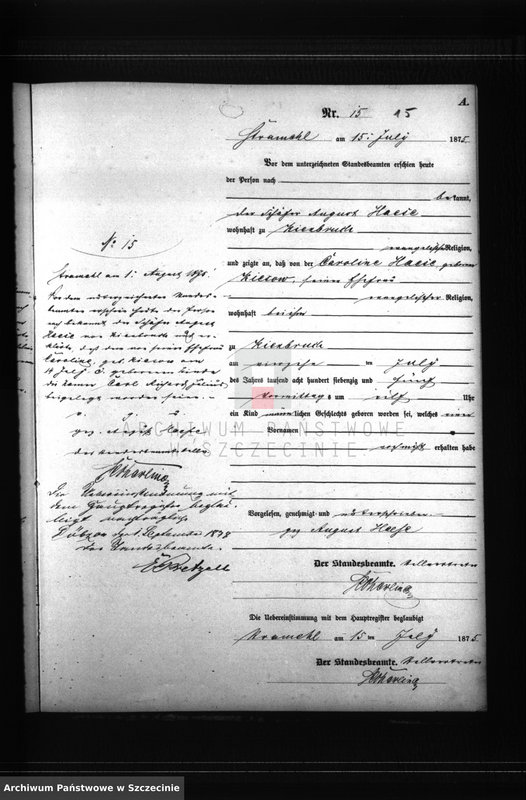 A.
Nr. 15 15
Stramehl am 15. July 1875
Vor dem unterzeichneten Standesbeamten erschien heute
der Person nach
bekannt,
der Schäfer August Haese
wohnhaft zu
evangelischer Religion,
und zeigte an, daß von der Caroline Haese geborene
Kiesow, seiner Ehefrau
evangelischer Religion,
wohnhaft bei ihm
zu
am ten July
des Jahres tausend acht hundert siebenzig und fünf
Vormittags um elf Uhr
ein Kind männlichen Geschlechts geboren worden sei, welches einen
Vornamen
noch nicht erhalten habe
Vorgelesen, genehmigt und unterschrieben
gez August Haese
Der Standesbeamte.
Die Uebereinstimmung mit dem Hauptregister beglaubigt
Stramehl am 15 ten July 1875
Der Standesbeamte.
No 15
Stramehl am 1. August
Vor dem unterzeichneten Standes-
beamten erschien heute der Person
nach bekannt der Schäfer August
Haese
klärte, daß dem von seiner Ehefrau
Caroline, geb. Kiesow am
July geborenen Kinde
die Namen Carl
beigelegt worden seien.
v. g. u.
gez. August Haese
Der Standesbeamte
Die Uebereinstimmung mit
dem Hauptregister beglau-
bigt nachträglich
September 1878
Der Standesbeamte.
ARCHIWUM PAŃSTWOWE
W SZCZECINIE
Archiwum Państwowe w Szczecinie